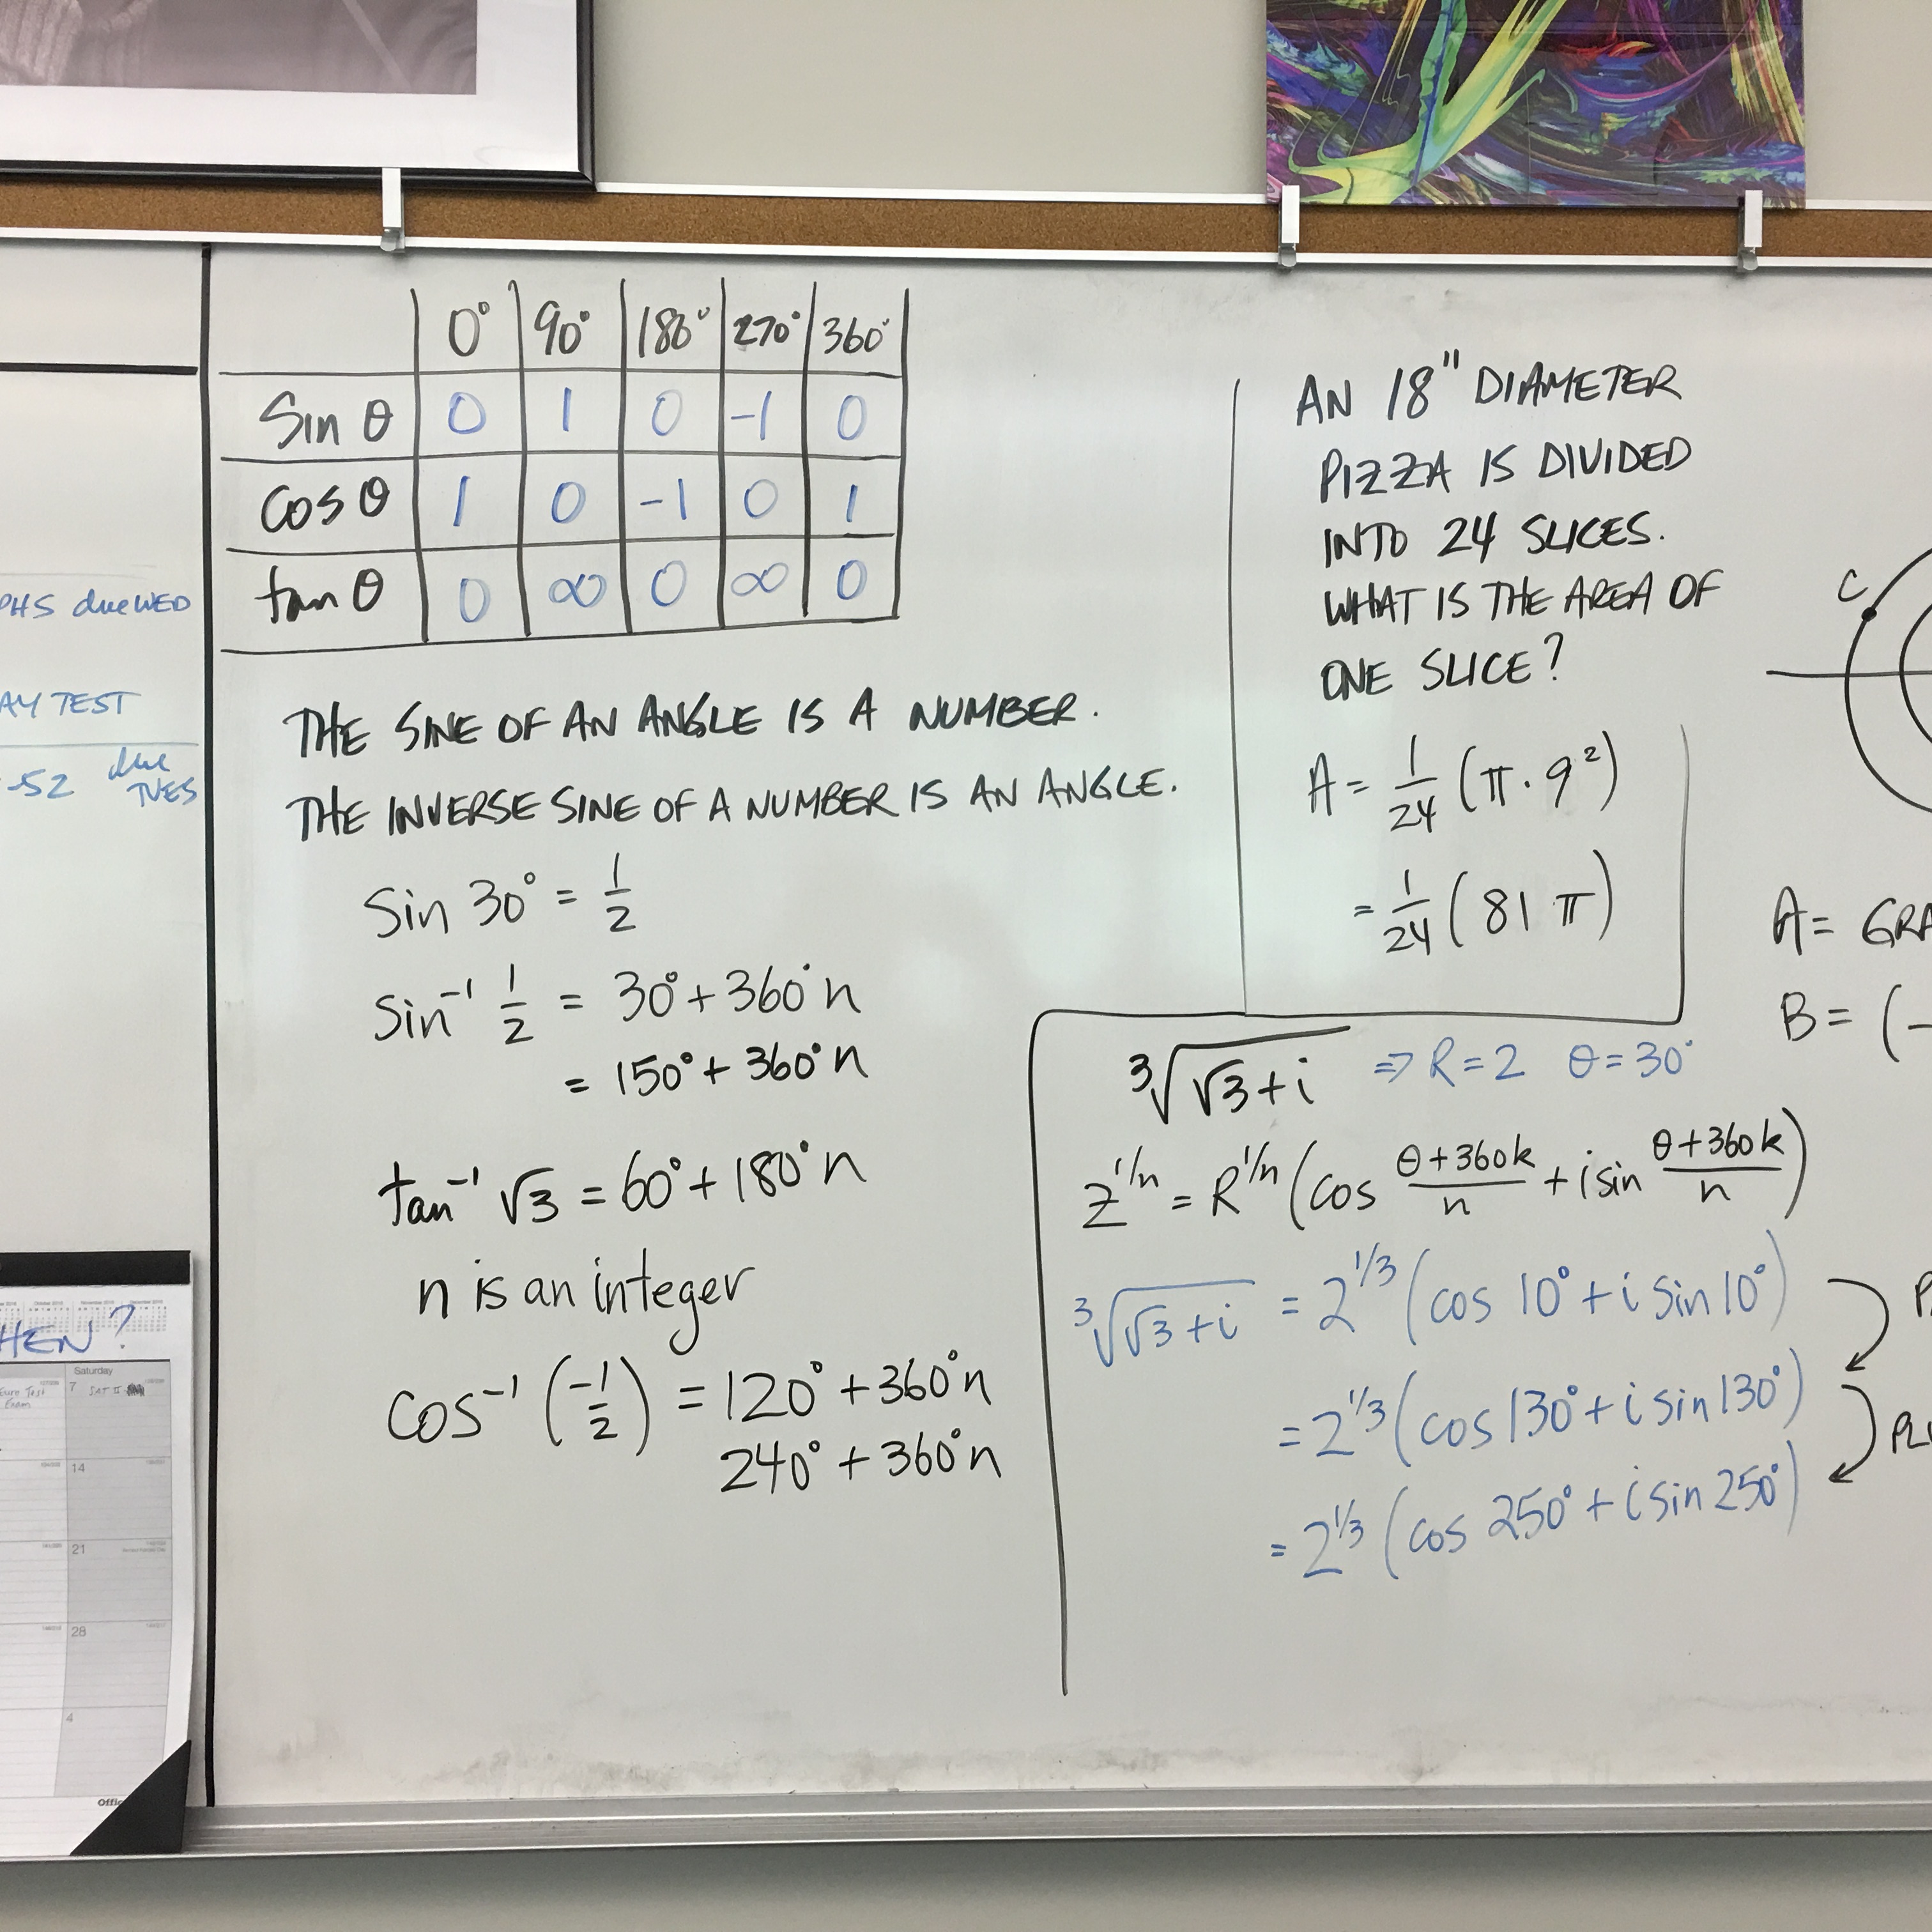 0° 90° 180° 270° 360°
Sin θ 0 1 0 -1 0
Cos θ 1 0 -1 0 1
tan θ 0 ∞ 0 ∞ 0
THE SINE OF AN ANGLE IS A NUMBER.
THE INVERSE SINE OF A NUMBER IS AN ANGLE.
Sin 30° = 1/2
Sin⁻¹ 1/2 = 30° + 360° n
= 150° + 360° n
tan⁻¹ √3 = 60° + 180° n
n is an integer
Cos⁻¹ (-1/2) = 120° + 360° n
240° + 360° n
AN 18" DIAMETER
PIZZA IS DIVIDED
INTO 24 SLICES.
WHAT IS THE AREA OF
ONE SLICE?
A = 1/24 (π · 9²)
= 1/24 (81 π)
³√(√3 + i) ⇒ R = 2 θ = 30°
Z^(1/n) = R^(1/n) (cos (θ + 360k)/n + i sin (θ + 360k)/n)
³√(√3 + i) = 2^(1/3) (cos 10° + i sin 10°)
= 2^(1/3) (cos 130° + i sin 130°)
= 2^(1/3) (cos 250° + i sin 250°)
C
A = GRA
B = (-
P
PLU
PHS due WED
AY TEST
-52 due
TUES
HEN?
Saturday
7 SAT II
Euro Test
Exam
14
21
28
4
Offic